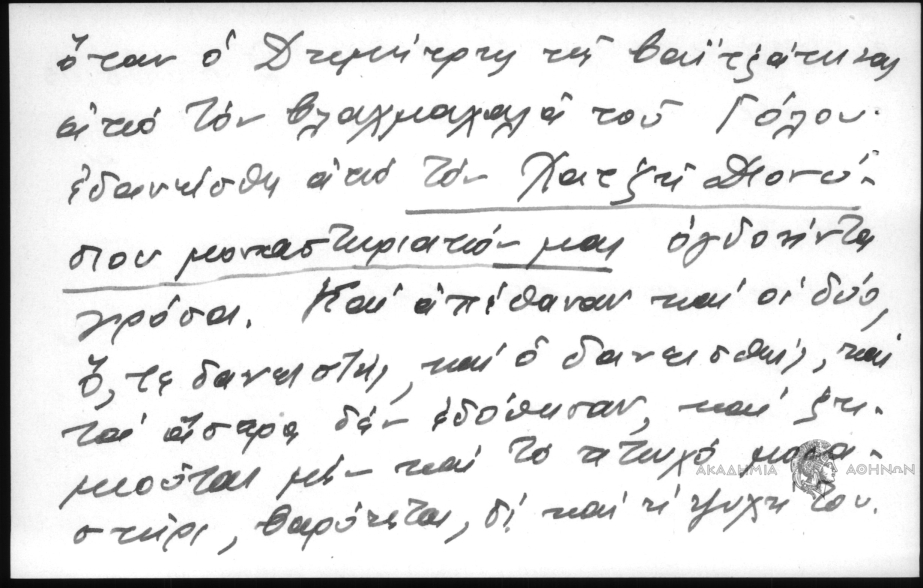 ὅταν ὁ Δημήτρης τῆς Βαϊτζάτινας
ἀπό τόν Βλαχμαχαλᾶ τοῦ Γόλου.
ἐδανείσθη ἀπό τόν Χατζῆ Διονύ-
σιον μοναστηριακόν μας ὀγδοήντα
γρόσια. Καί ἀπέθαναν καί οἱ δύο,
ὅ,τε δανειστής, καί ὁ δανεισθείς, καί
τά ἄσπρα δέν ἐδόθησαν, καί ζη-
μιοῦται μέν καί τό πτωχό μονα-
στήρι, βαρύνεται, δέ καί ἡ ψυχή του.
ΑΚΑΔΗΜΙΑ ΑΘΗΝΩΝ